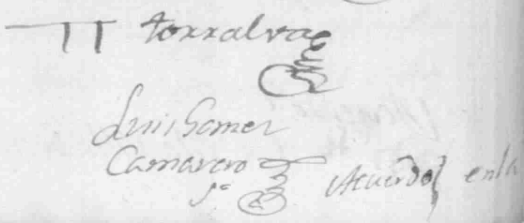 torralva
Luis Gomez
Camarero
Acuerdo enla